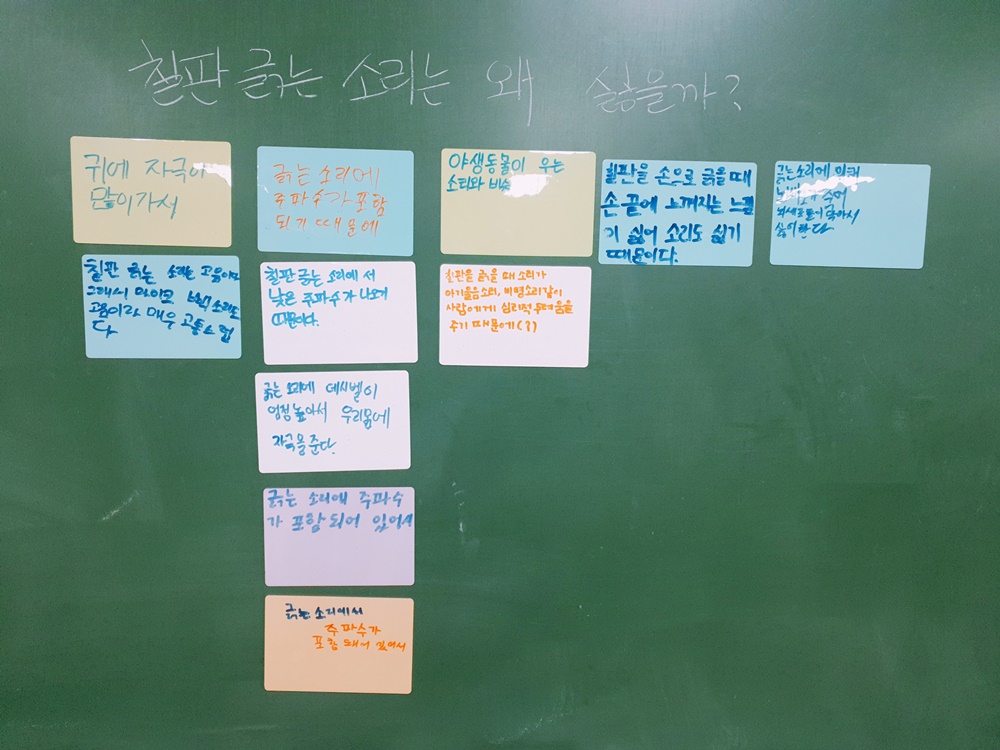 칠판 긁는 소리는 왜 싫을까?
귀에 자극이
많이가서
긁는 소리에
주파수가 포함
되기 때문에
야생동물이 우는
소리와
칠판을 손으로 긁을 때
손 끝에 느껴지는 느낌
이 싫어 소리도 싫기
때문이다.
긁는소리에 의해
죽어
싫어한다
칠판 긁는 소리는 고음이다
그래서 마이크 소리도
고음이라 매우 고통스럽
다
칠판 긁는 소리에서
낮은 주파수가 나오기
때문이다.
칠판을 긁을 때 소리가
아기울음소리, 비명소리같이
사람에게 심리적 두려움을
주기 때문에(?)
긁는 소리에 데시벨이
엄청높아서 우리몸에
자극을 준다.
긁는 소리에 주파수
가 포함 되어 있어서
긁는 소리에서
주파수가
포함 돼서 있어서